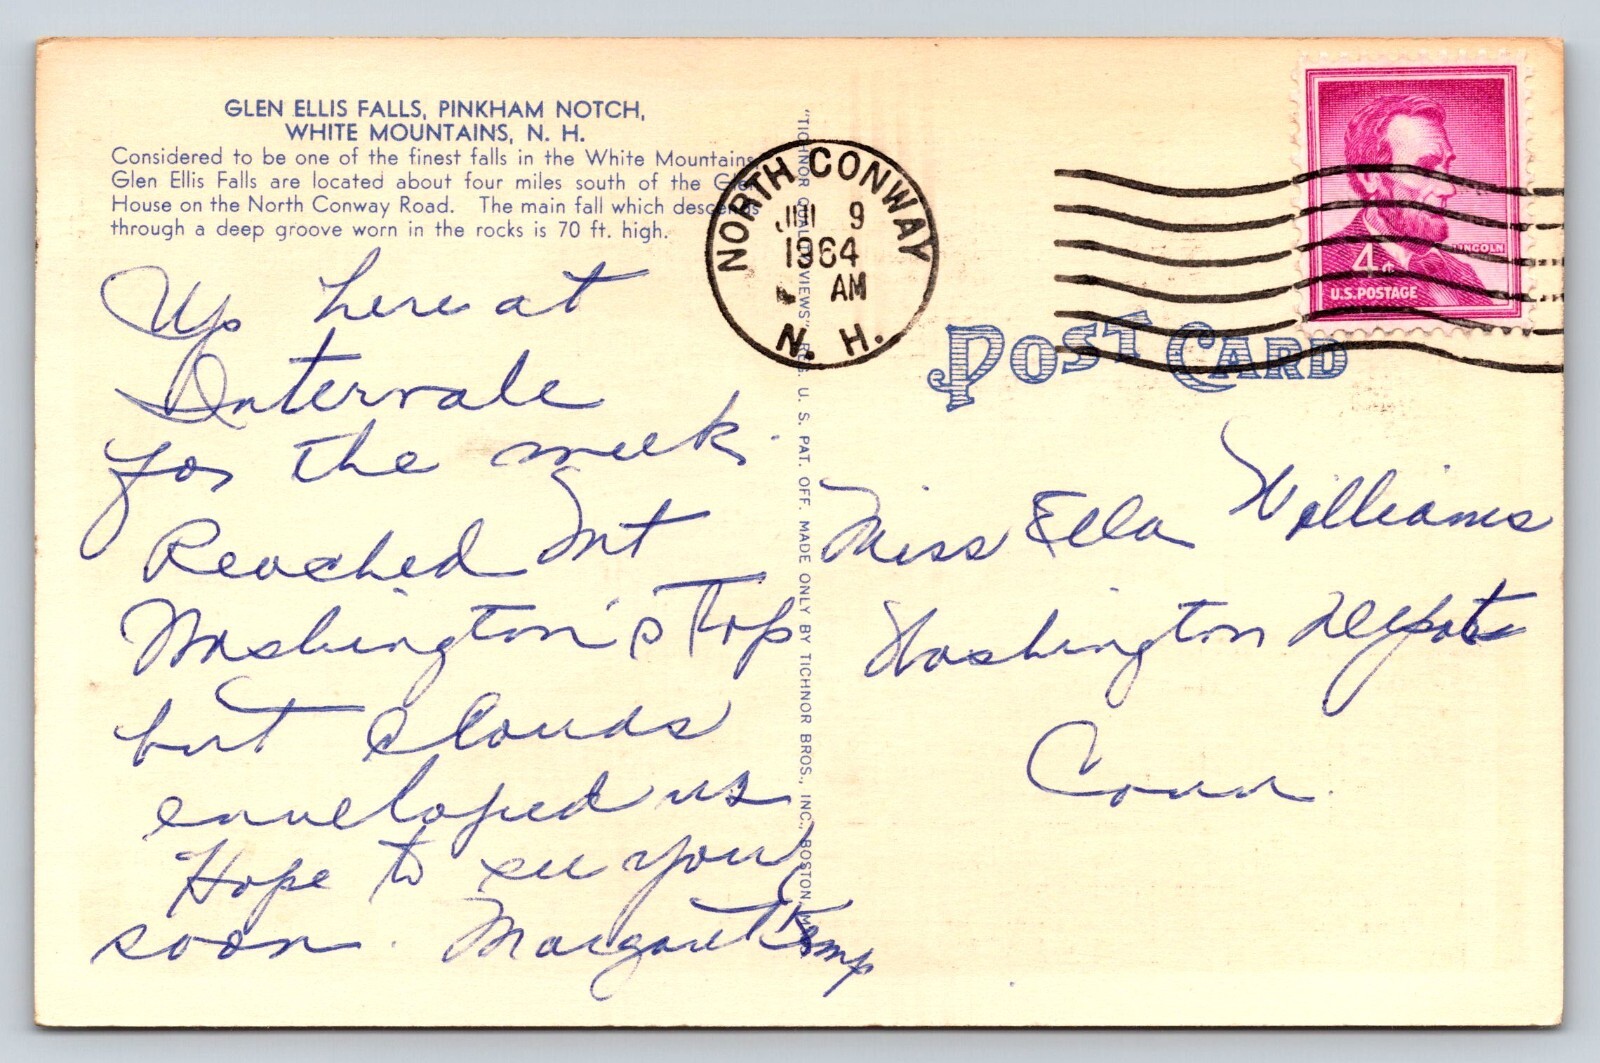 GLEN ELLIS FALLS, PINKHAM NOTCH,
WHITE MOUNTAINS, N. H.
Considered to be one of the finest falls in the White Mountains
Glen Ellis Falls are located about four miles south of the Glen
House on the North Conway Road. The main fall which descends
through a deep groove worn in the rocks is 70 ft. high.
Up here at
Intervale
for the week.
Reached Mt
Washington's Top
but clouds
enveloped us
Hope to see you
soon. Margaret Kemp
"TICHNOR QUALITY VIEWS" REG. U. S. PAT. OFF. MADE ONLY BY TICHNOR BROS., INC., BOSTON, MASS.
NORTH CONWAY
9
1964
AM
N. H.
LINCOLN
4¢
U.S. POSTAGE
POST CARD
Miss Ella Williams
Washington Depot
Conn.